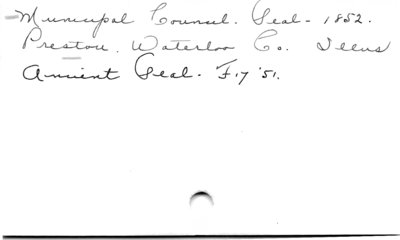 Municipal Counsel. Seal - 1852.
Preston. Waterloo Co. Illus
Ancient Seal. F. 17 '51.